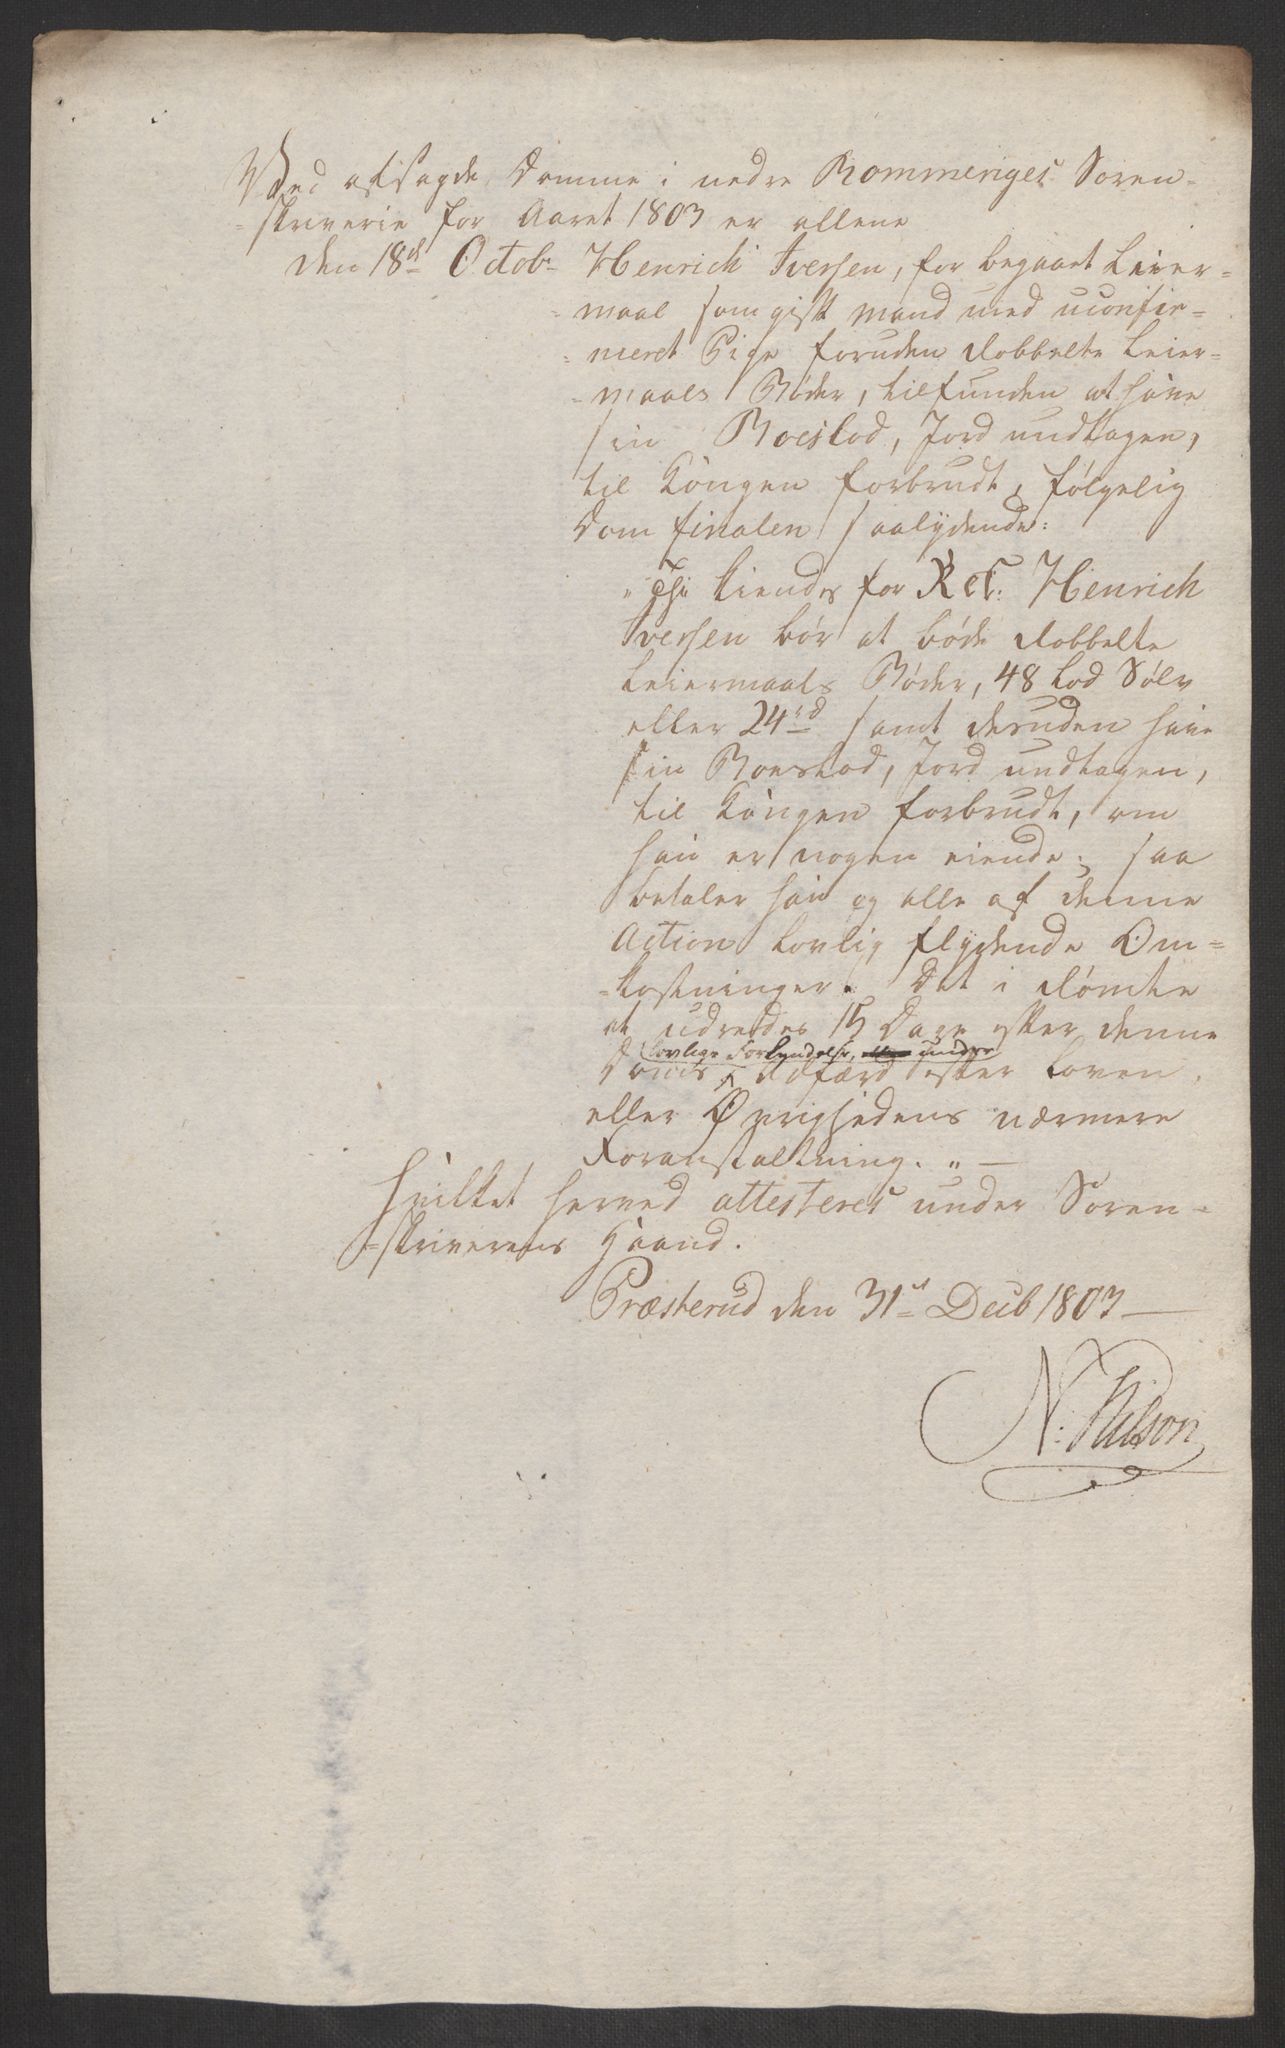 Ved afsagde Domme i nedre Rommeriges Soren-
-skriverie for Aaret 1803 er allene
den 18de Octobr Henrich Iversen, for begaaet Leier-
-maal som gift mand med uconfir-
-meret Pige foruden dobbelte Leier-
-maals Bøder, tilfunden at have
sin Boeslod, Jord undtagen,
til Kongen forbrudt, følgelig
Dom finalen saalydende:
"Thi kiendes for Ret: Henrich
Iversen bør at bøde dobbelte
Leiermaals Bøder, 48 Lod Sølv
eller 24rd samt desuden have
sin Boeslod, Jord undtagen,
til Kongen forbrudt, om
han er nogen eiende; saa
betaler han og alle af denne
Action lovlig flydende Om-
-kostninger. Det i dømte
at udredes 15 Dage efter denne
lovlige Forkyndelse, under
Doms Adfærd efter Loven,
eller Øvrighedens nærmere
Foranstaltning." —
Hvilket herved attesteres under Soren-
-skriverens Haand.
Præsterud den 31te Decb 1803 —
N: Nilson